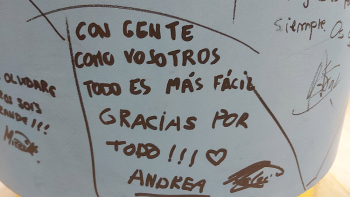 CON GENTE
COMO VOSOTROS
TODO ES MÁS FÁCIL
GRACIAS POR
TODO!!! ♡
ANDREA
siempre. Os
OLVIDARE
SOIS